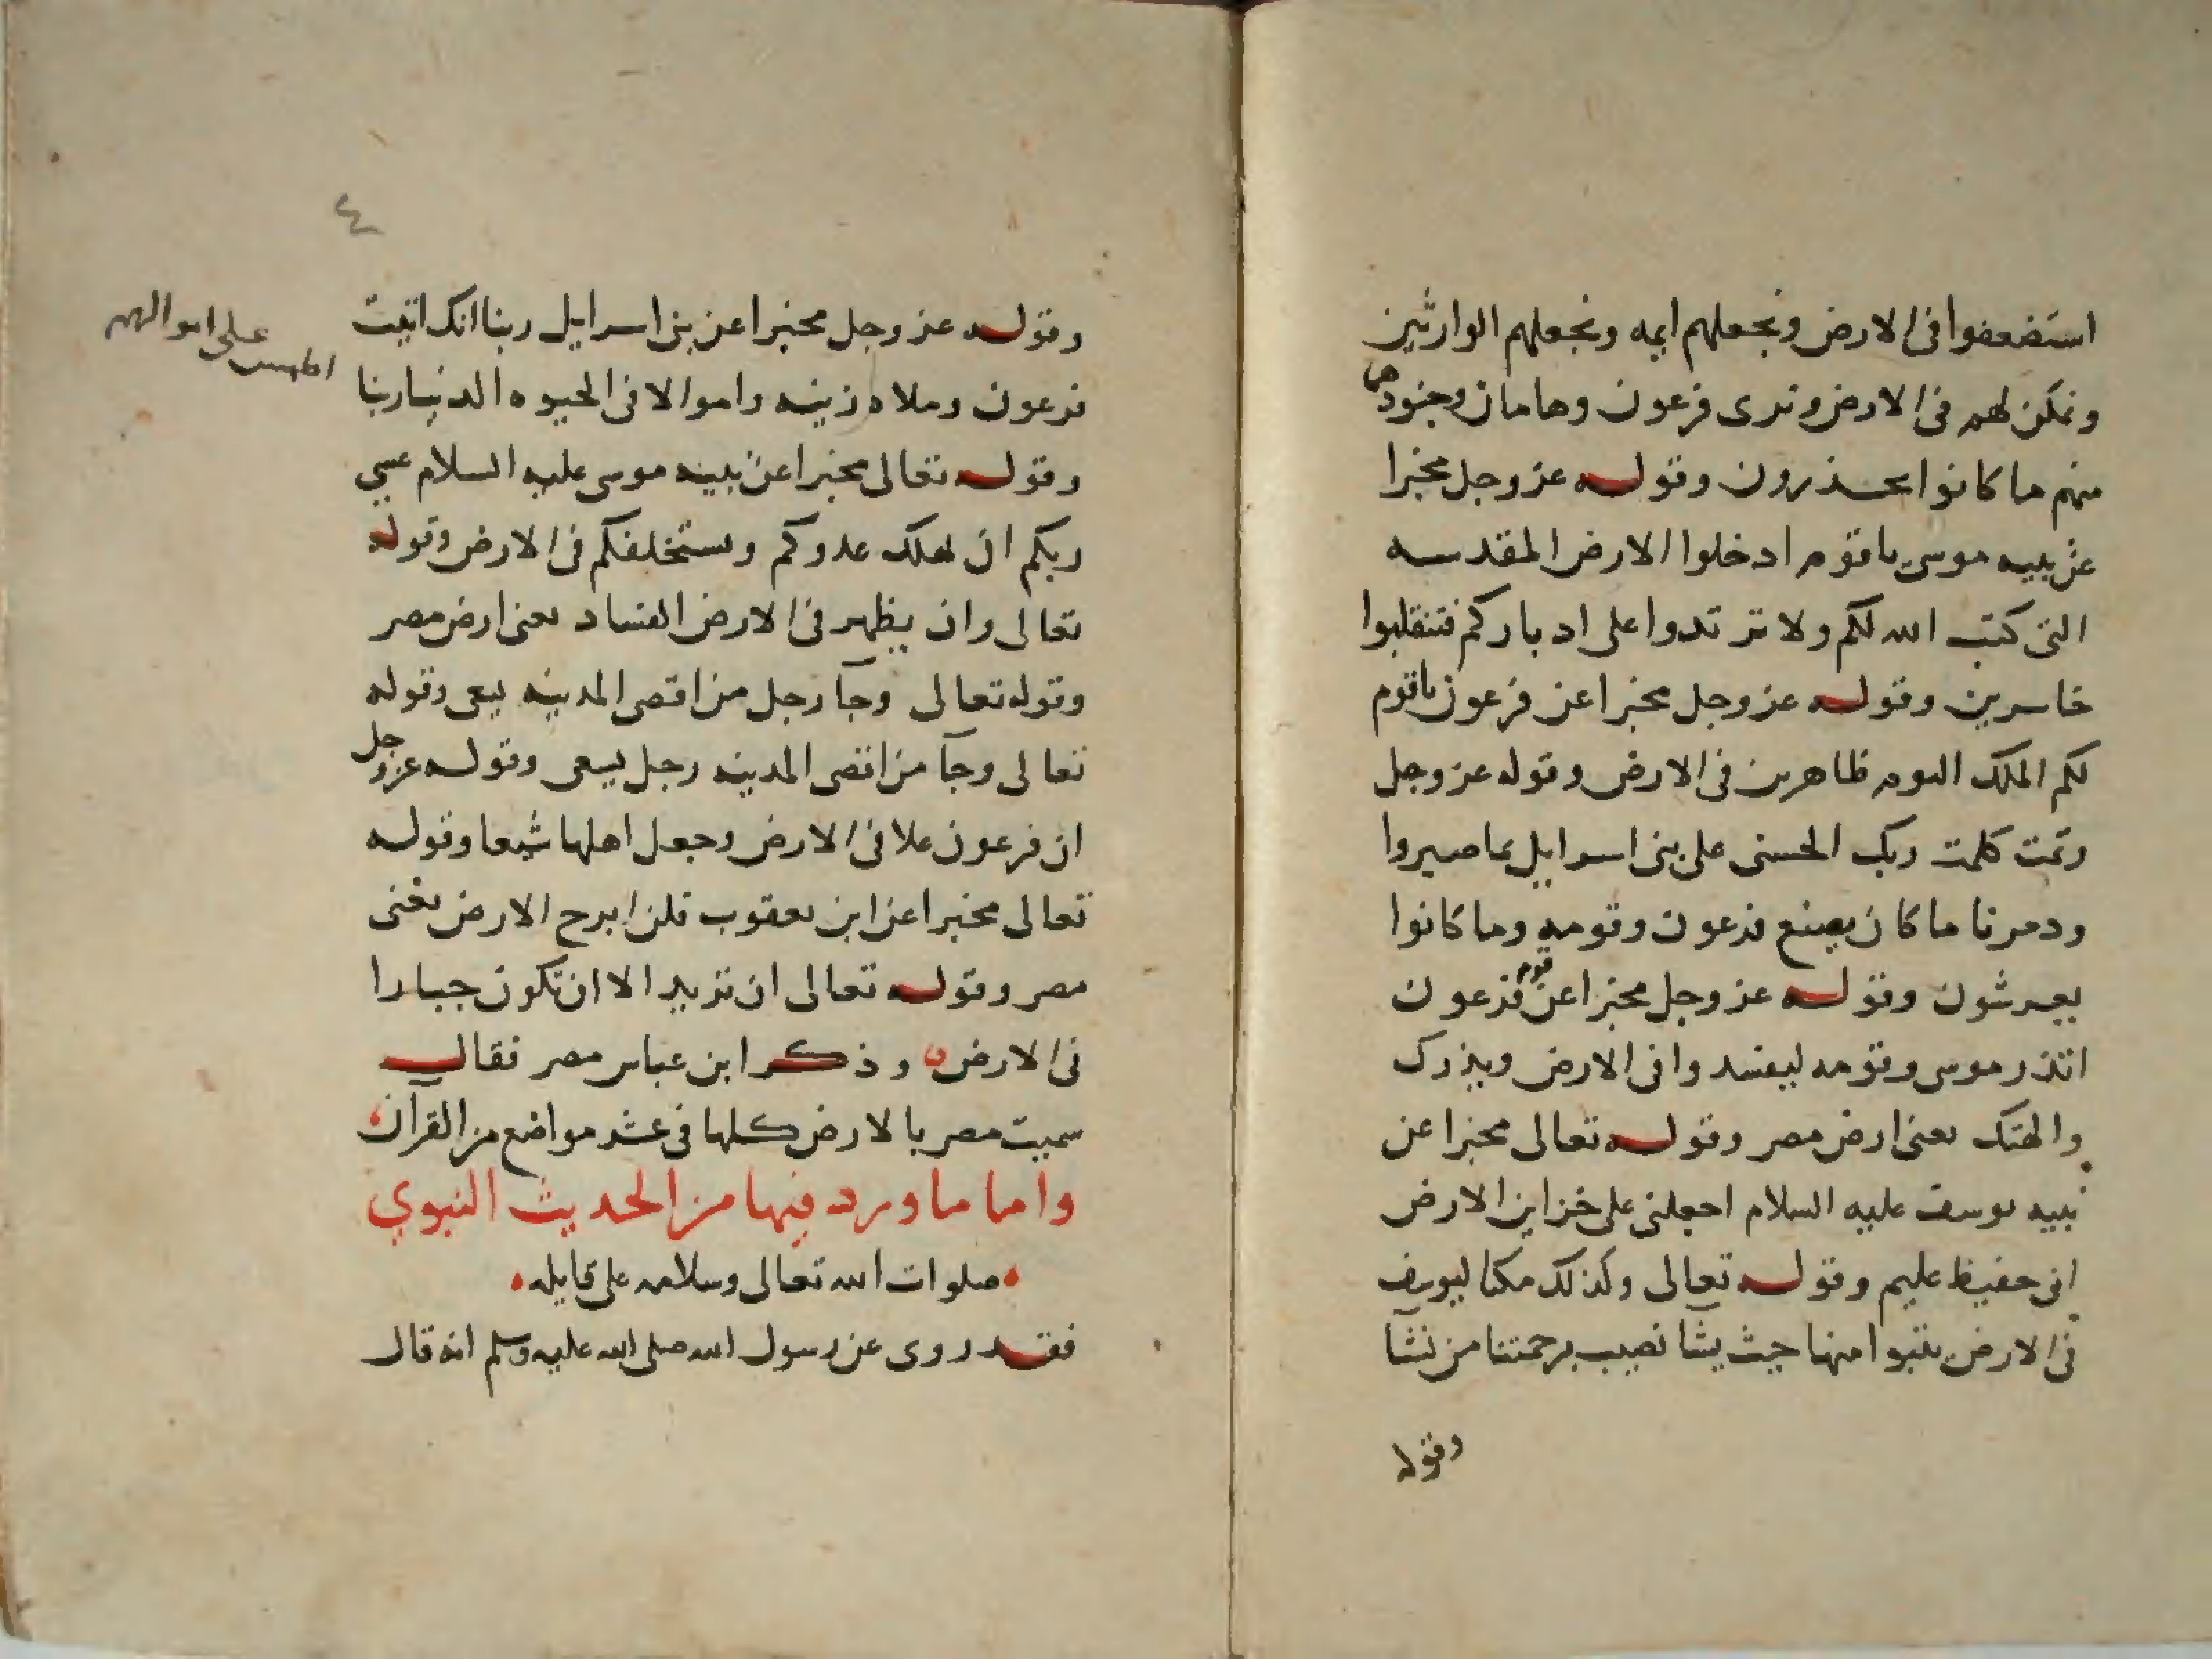 استضعفوا فى الارض ونجعلهم ايمه ونجعلهم الوارثين
ونمكن لهم فى الارض ونرى فرعون وهامان وجنودهما
منهم ما كانوا يحذرون وقوله عز وجل مخبرا
عن نبيه موسى ياقوم ادخلوا الارض المقدسه
التى كتب الله لكم ولا ترتدوا على ادباركم فتنقلبوا
خاسرين وقوله عز وجل مخبرا عن فرعون ياقوم
لكم الملك اليوم ظاهرين فى الارض وقوله عز وجل
وتمت كلمت ربك الحسنى على بنى اسرايل بما صبروا
ودمرنا ما كان يصنع فرعون وقومه وما كانوا
يعرشون وقوله عز وجل مخبرا عن قوم فرعون
اتذر موسى وقومه ليفسدوا فى الارض ويذرك
والهتك يعنى ارض مصر وقوله تعالى مخبرا عن
نبيه يوسف عليه السلام اجعلنى على خزاين الارض
انى حفيظ عليم وقوله تعالى وكذلك مكنا ليوسف
فى الارض يتبوا منها حيث يشا نصيب برحمتنا من نشا
وقوله
٤
وقوله عز وجل مخبرا عن بنى اسرايل ربنا انك اتيت
فرعون وملاه زينه واموالا فى الحيوه الدنيا ربنا
اطمس على اموالهم
وقوله تعالى مخبرا عن نبيه موسى عليه السلام عسى
ربكم ان يهلك عدوكم ويستخلفكم فى الارض وقوله
تعالى وان يظهر فى الارض الفساد يعنى ارض مصر
وقوله تعالى وجآ رجل من اقصى المدينه يسعى وقوله
تعالى وجآ من اقصى المدينه رجل يسعى وقوله عز وجل
ان فرعون علا فى الارض وجعل اهلها شيعا وقوله
تعالى مخبرا عن ابن يعقوب فلن ابرح الارض يعنى
مصر وقوله تعالى ان تريد الا ان تكون جبارا
فى الارض وذكر ابن عباس مصر فقال
سميت مصر بالارض كلها فى عشر مواضع من القرآن
واما ما ورد فيها من الحديث النبوي
صلوات الله تعالى وسلامه على قايله
فقد روى عن رسول الله صلى الله عليه وسلم انه قال